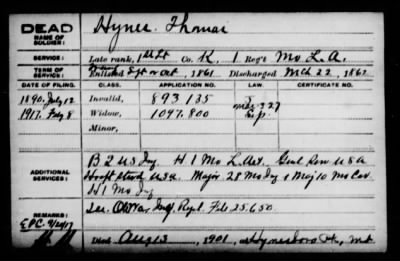 DEAD
NAME OF SOLDIER: Hynes, Thomas
SERVICE: Late rank, 1st Lt Co. K, 1 Reg't Mo L.A.
TERM OF SERVICE: Enlisted Sept or Oct, 1861 Discharged Mch 22, 1862
DATE OF FILING. CLASS. APPLICATION NO. LAW. CERTIFICATE NO.
1890. July 12 Invalid, 893135
1917. Feby 8 Widow, 1097.800
Minor,
ADDITIONAL SERVICES: B 2 U S Inf H 1 Mo L Art. Genl Serv U S A
Major 28 Mo Inf Maj 10 Mo Cav
H 1 Mo Inf
REMARKS: 25.650
EPC. 9/20/17
Died Aug 13, 1901, at